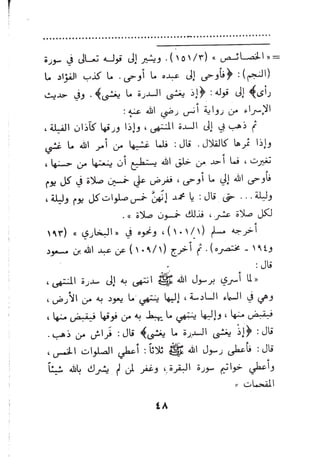 = « الخصائص » (١٥١/٣). ويشير إلى قوله تعالى في سورة
(النجم): ﴿فأوحى إلى عبده ما أوحى. ما كذب الفؤاد ما
رأى﴾ إلى قوله: ﴿إذ يغشى السدرة ما يغشى﴾. وفي حديث
الإسراء من رواية أنس رضي الله عنه:
ثم ذهب بي إلى السدة المنتهى، وإذا ورقها كآذان الفيلة،
وإذا ثمرها كالقلال. قال: فلما غشيها من أمر الله ما غشي
تغيرت، فما أحد من خلق الله يستطيع أن ينعتها من حسنها،
فأوحى الله إلي ما أوحى، ففرض علي خمسين صلاة في كل يوم
وليلة... حتى قال: يا محمد إنهن خمس صلوات كل يوم وليلة،
لكل صلاة عشر، فذلك خمسون صلاة ».
أخرجه مسلم (١٠١/١)، ونحوه في « البخاري » (١٩٣
و١٩٤ - مختصره). ثم أخرج (١٠٩/١) عن عبد الله بن مسعود
قال:
« لما أسري برسول الله ﷺ انتهى به إلى سدرة المنتهى،
وهي في السماء السادسة، إليها ينتهي ما يعرج به من الأرض،
فيقبض منها، وإليها ينتهي ما يهبط به من فوقها فيقبض منها،
قال: ﴿إذ يغشى السدرة ما يغشى﴾ قال: فراش من ذهب.
قال: فأعطي رسول الله ﷺ ثلاثاً: أعطي الصلوات الخمس،
وأعطي خواتيم سورة البقرة، وغفر لمن لم يشرك بالله شيئاً
المقحمات »
٤٨